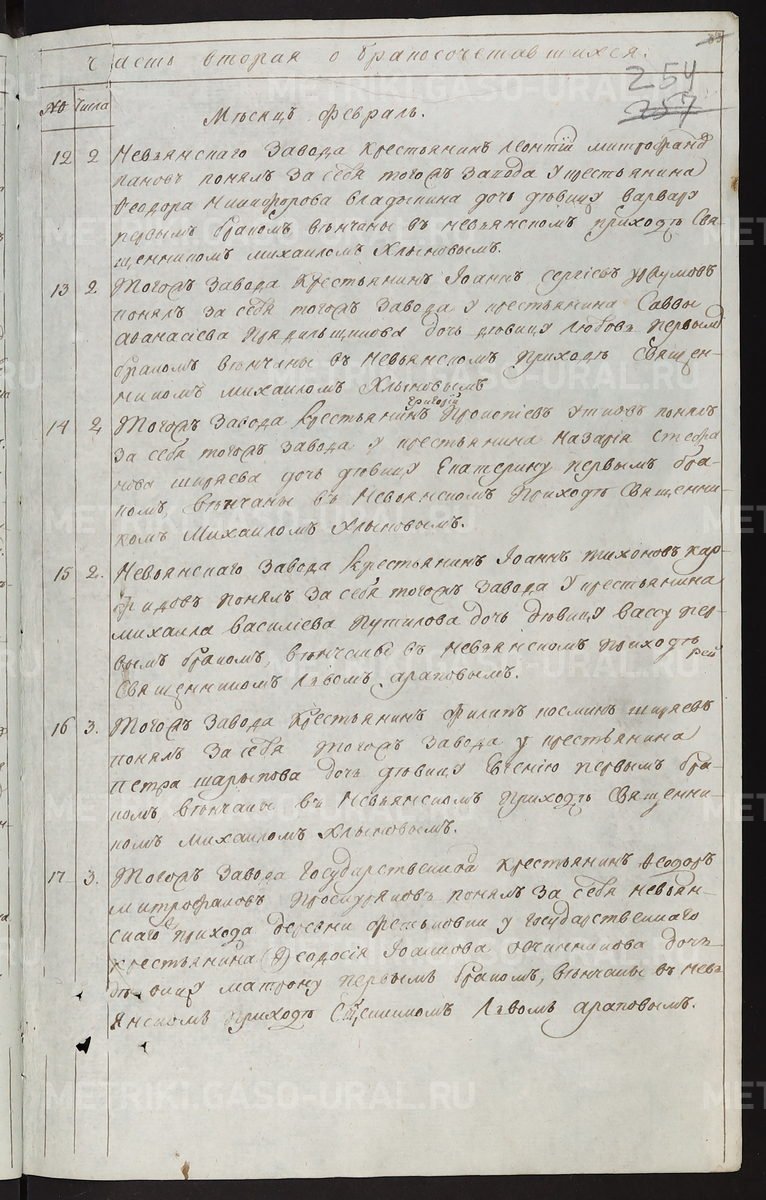 Часть вторая о бракосочетавшихся.
254
257
№ Числа
Мѣсяцъ февраль.
12 2 Невьянскаго завода крестьянинъ Леонтій Митрофан
пановъ понялъ за себя тогожъ завода у крестьянина
Ѳеодора Никифорова дочь дѣвицу Варвару
первымъ бракомъ вѣнчаны въ невьянскомъ приходѣ Свя-
щенникомъ Михаиломъ Хлыновымъ.
13 2 Тогожъ завода крестьянинъ Іоаннъ Сергіевъ
понялъ за себя тогожъ завода у крестьянина Саввы
Аѳанасіева Прядильщикова дочь дѣвицу Любовь первымъ
бракомъ вѣнчаны въ Невьянскомъ приходѣ Священ-
никомъ Михаиломъ Хлыновымъ
Григорій
14 2 Тогожъ завода крестьянинъ Прокопіевъ Утковъ понялъ
за себя тогожъ завода у крестьянина Назарія Стефа
нова Ширяева дочь дѣвицу Екатерину первымъ бра-
комъ, вѣнчаны въ Невьянскомъ приходѣ Священни-
комъ Михаиломъ Хлыновымъ.
15 2. Невьянскаго завода крестьянинъ Іоаннъ Тихоновъ Кар-
фидовъ понялъ за себя тогожъ завода у крестьянина
Михаила Василіева Путилова дочь дѣвицу Вассу пер-
вымъ бракомъ, вѣнчаны въ Невьянскомъ приходѣ
Священникомъ Львомъ Араповымъ.
16 3. Тогожъ завода крестьянинъ Филипъ Косминъ Ширяевъ
понялъ за себя тогожъ завода у крестьянина
Петра Шарыпова дочь дѣвицу Евгенію первымъ бра-
комъ вѣнчаны въ Невьянскомъ приходѣ Священни-
комъ Михаиломъ Хлыновымъ.
17 3. Тогожъ завода Государственной крестьянинъ Ѳеодоръ
Митрофановъ Проскуряковъ понялъ за себя Невьян-
скаго прихода деревни у Государственнаго
крестьянина Ѳеодосія Іоаннова Овчинникова дочь
дѣвицу Матрону первымъ бракомъ, вѣнчаны въ Невь
янскомъ приходѣ Львомъ Араповымъ.
METRIKI.GASO-URAL.RU